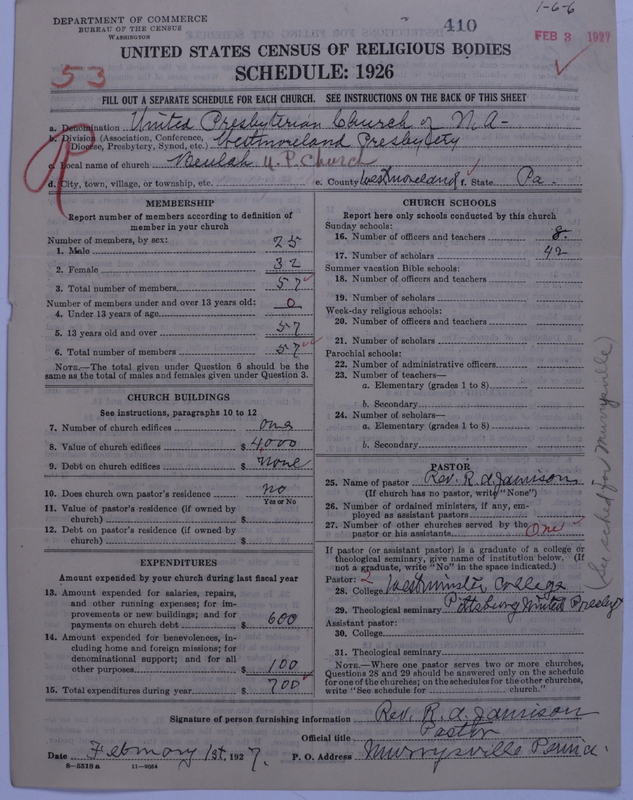 1-6-6
DEPARTMENT OF COMMERCE
BUREAU OF THE CENSUS
WASHINGTON
410
FEB 3 1927
UNITED STATES CENSUS OF RELIGIOUS BODIES
53
SCHEDULE: 1926
FILL OUT A SEPARATE SCHEDULE FOR EACH CHURCH. SEE INSTRUCTIONS ON THE BACK OF THIS SHEET
R
a. Denomination United Presbyterian Church of N A-
b. Division (Association, Conference, Diocese, Presbytery, Synod, etc.) Westmoreland Presbytery
c. Local name of church Beulah U. P. Church
d. City, town, village, or township, etc. e. County Westmoreland f. State Pa.
MEMBERSHIP
Report number of members according to definition of
member in your church
Number of members, by sex:
1. Male 25
2. Female 32
3. Total number of members 57
Number of members under and over 13 years old:
4. Under 13 years of age 0
5. 13 years old and over 57
6. Total number of members 57
NOTE.—The total given under Question 6 should be
same as the total of males and females given under Question 3.
CHURCH BUILDINGS
See instructions, paragraphs 10 to 12
7. Number of church edifices one
8. Value of church edifices $ 4000
9. Debt on church edifices $ none
10. Does church own pastor's residence no
Yes or No
11. Value of pastor's residence (if owned by
church) $
12. Debt on pastor's residence (if owned by
church) $
EXPENDITURES
Amount expended by your church during last fiscal year
13. Amount expended for salaries, repairs,
and other running expenses; for im-
provements or new buildings; and for
payments on church debt $ 600
14. Amount expended for benevolences, in-
cluding home and foreign missions; for
denominational support; and for all
other purposes $ 100
15. Total expenditures during year $ 700
CHURCH SCHOOLS
Report here only schools conducted by this church
Sunday schools:
16. Number of officers and teachers 8.
17. Number of scholars 42
Summer vacation Bible schools:
18. Number of officers and teachers
19. Number of scholars
Week-day religious schools:
20. Number of officers and teachers
21. Number of scholars
Parochial schools:
22. Number of administrative officers
23. Number of teachers—
a. Elementary (grades 1 to 8)
b. Secondary
24. Number of scholars—
a. Elementary (grades 1 to 8)
b. Secondary
PASTOR
25. Name of pastor Rev. R. A. Jamison
(If church has no pastor, write "None")
26. Number of ordained ministers, if any, em-
ployed as assistant pastors
27. Number of other churches served by the
pastor or his assistants One
If pastor (or assistant pastor) is a graduate of a college or
theological seminary, give name of institution below. (If
not a graduate, write "No" in the space indicated.)
Pastor: 2
28. College Westminster College
29. Theological seminary Pittsburg United Presby
Assistant pastor:
30. College
31. Theological seminary
NOTE.—Where one pastor serves two or more churches,
Questions 28 and 29 should be answered only on the schedule
for one of the churches; on the schedules for the other churches,
write "See schedule for church."
(See sched for Murrysville)
Signature of person furnishing information Rev. R. A. Jamison
Official title Pastor
Date February 1st, 1927. P. O. Address Murrysville Penna.
8—5518 a 11—9064